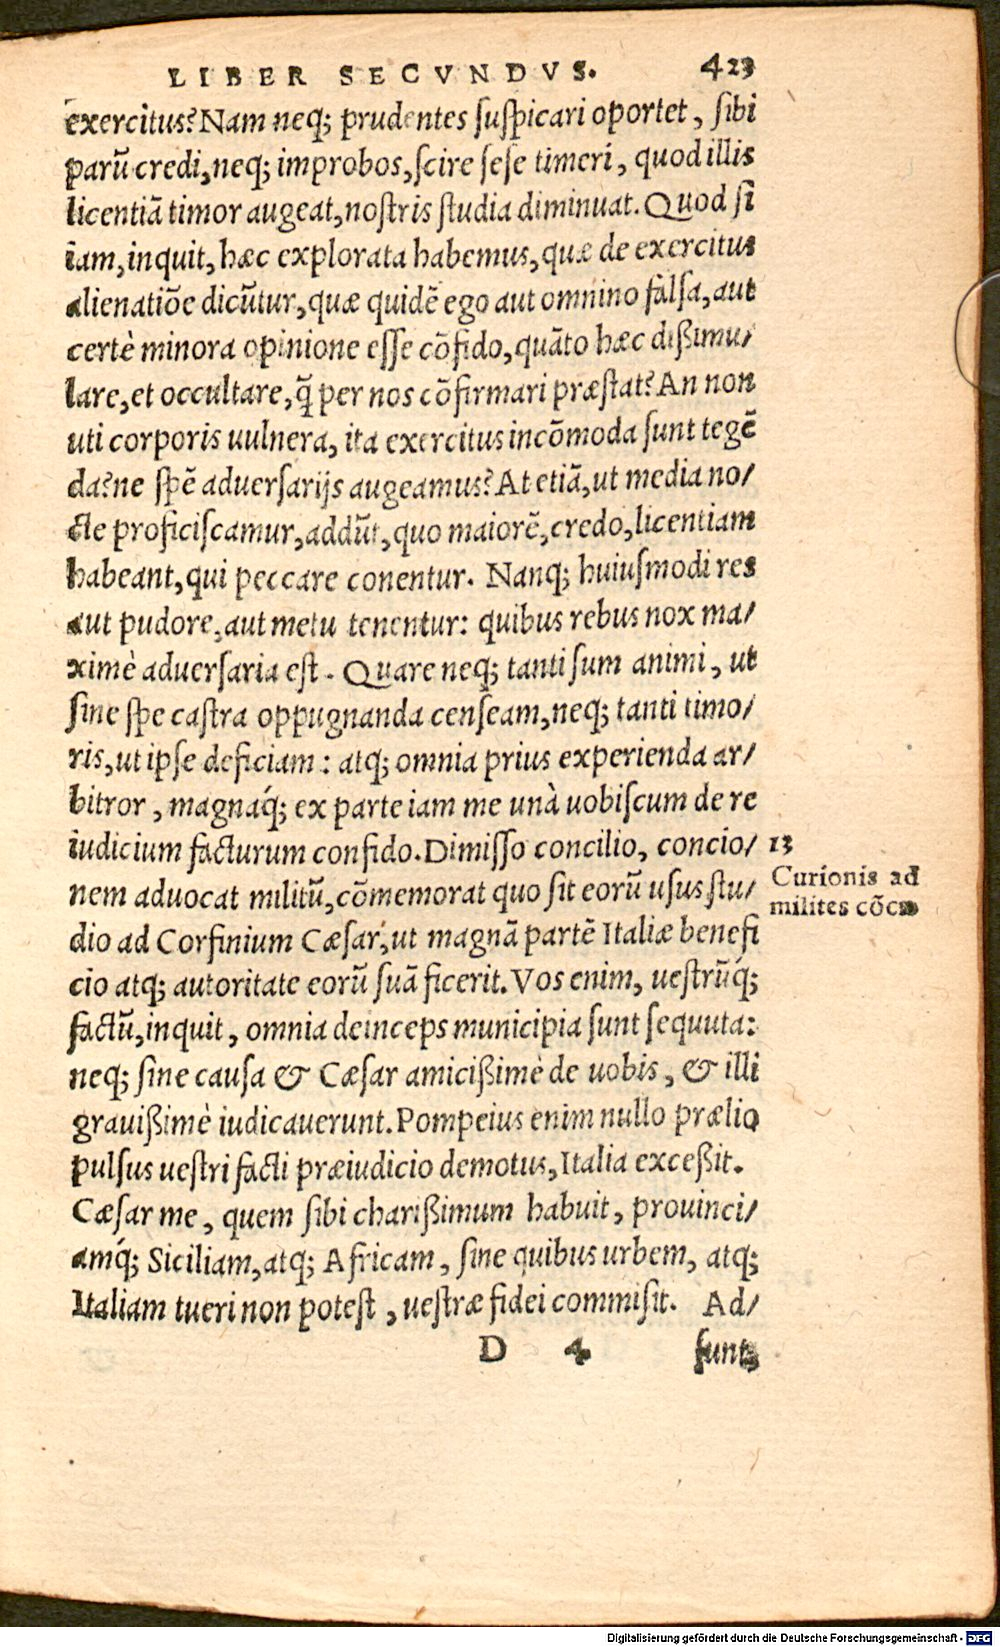 LIBER SECVNDVS. 423
exercitus? Nam neq; prudentes ſuſpicari oportet, ſibi
parū credi, neq; improbos, ſcire ſeſe timeri, quod illis
licentiā timor augeat, noſtris ſtudia diminuat. Quod ſi
iam, inquit, hæc explorata habemus, quæ de exercitus
alienatiōe dicūtur, quæ quidē ego aut omnino falſa, aut
certè minora opinione eſſe cōfido, quāto hæc dißimu/
lare, et occultare, q̄ per nos cōfirmari præſtat? An non
uti corporis uulnera, ita exercitus incōmoda ſunt tegē
da? ne ſpē aduerſarijs augeamus? At etiā, ut media no/
cte proficiſcamur, addūt, quo maiorē, credo, licentiam
habeant, qui peccare conentur. Nanq; huiuſmodi res
aut pudore, aut metu tenentur: quibus rebus nox ma/
ximè aduerſaria eſt. Quare neq; tanti ſum animi, ut
ſine ſpe caſtra oppugnanda cenſeam, neq; tanti timo/
ris, ut ipſe deficiam: atq; omnia prius experienda ar/
bitror, magnaq́; ex parte iam me unà uobiſcum de re
iudicium facturum confido. Dimiſſo concilio, concio/
nem aduocat militū, cōmemorat quo ſit eorū uſus ſtu/
dio ad Corfinium Cæſar, ut magnā partē Italiæ benefi
cio atq; autoritate eorū ſuā ficerit. Vos enim, ueſtrūq́;
factū, inquit, omnia deinceps municipia ſunt ſequuta:
neq; ſine cauſa & Cæſar amicißimè de uobis, & illi
grauißimè iudicauerunt. Pompeius enim nullo prælio
pulſus ueſtri facti præiudicio demotus, Italia exceßit.
Cæſar me, quem ſibi charißimum habuit, prouinci/
amq́; Siciliam, atq; Africam, ſine quibus urbem, atq;
Italiam tueri non poteſt, ueſtræ fidei commiſit. Ad/
D 4 ſunt
13
Curionis ad
milites cōcio
Digitalisierung gefördert durch die Deutsche Forschungsgemeinschaft - DFG